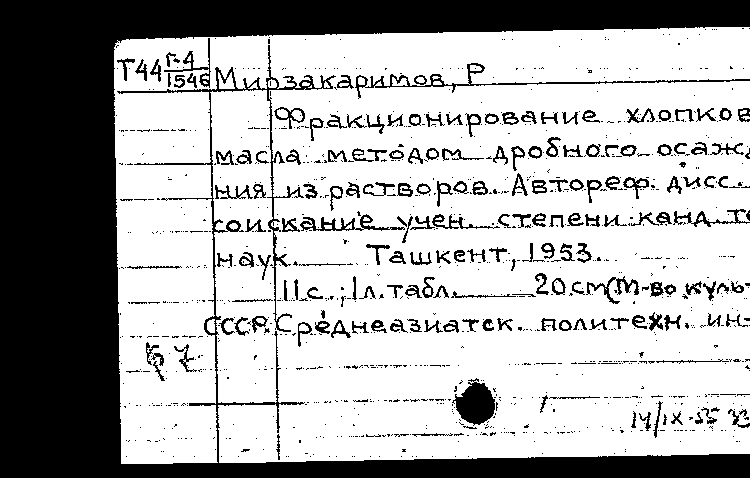 Т44 Г-4
1546 Мирзакаримов, Р
Фракционирование хлопков
масла методом дробного осаж
ния из растворов. Автореф. дисс.
соискание учен. степени канд. те
наук. Ташкент, 1953.
11 с.; 1 л. табл. 20 см (М-во куль
СССР. Среднеазиатск. политехн. ин-
14/IX-55